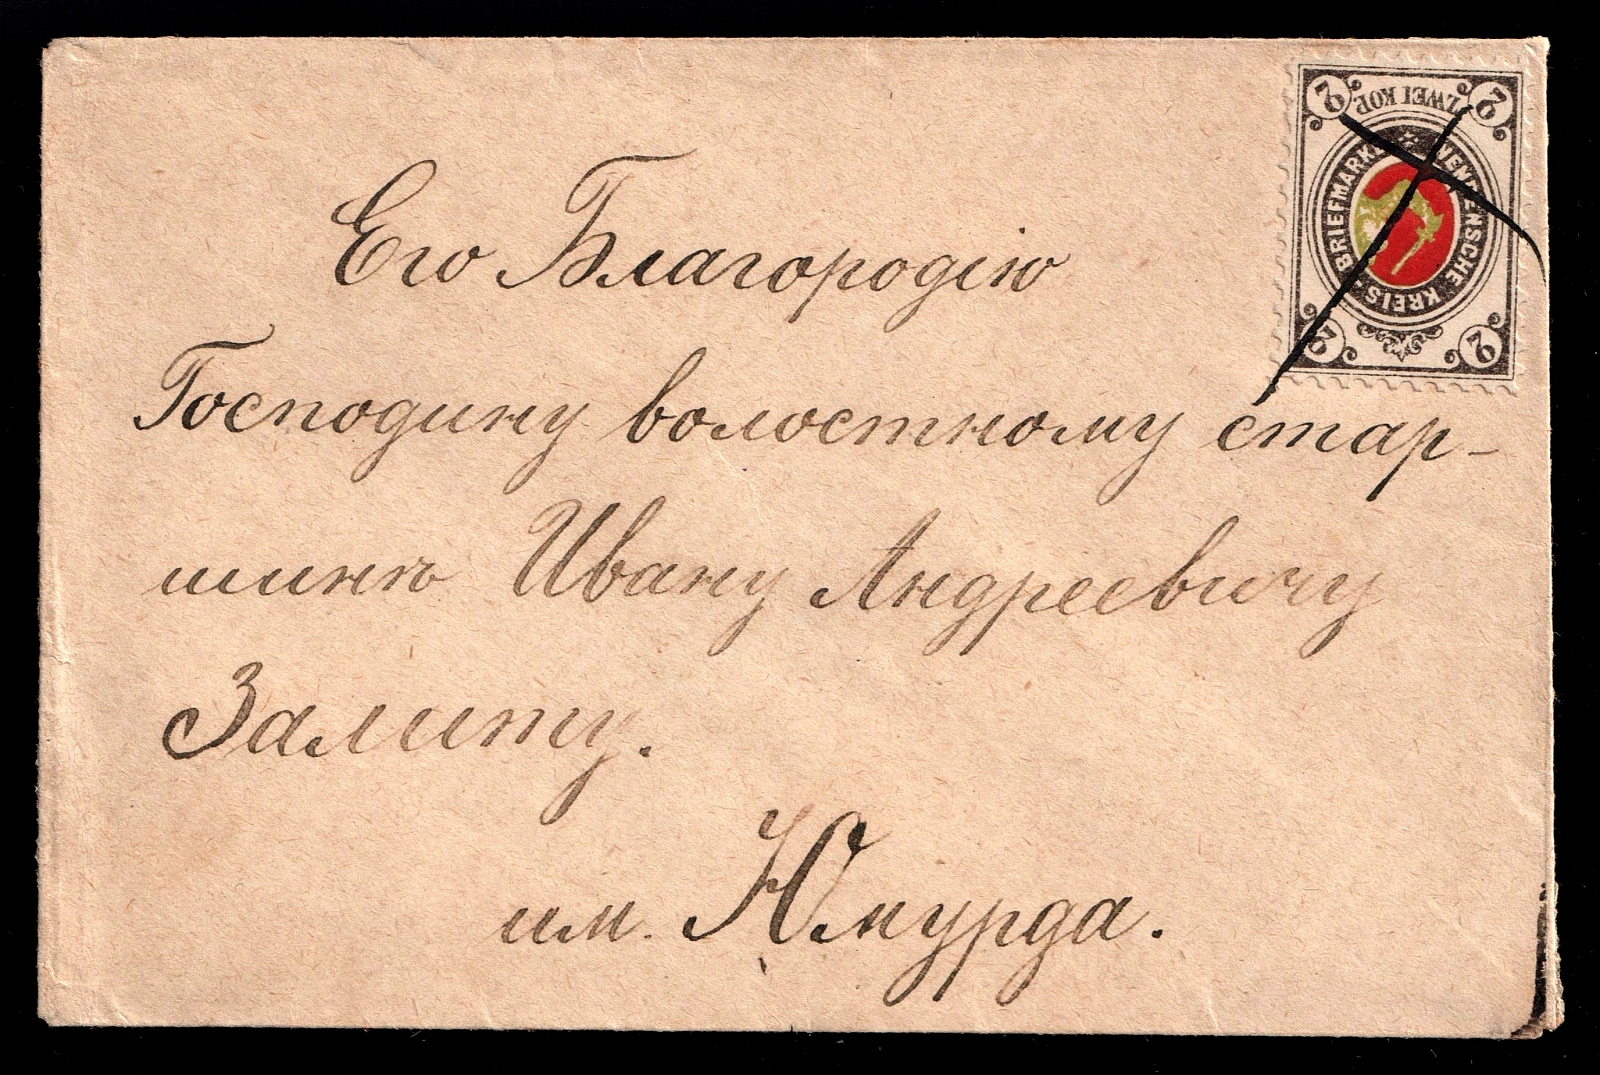 Его Благородію
Господину волостному стар-
шинѣ Ивану Андреевичу
Залиту.
им. Юмурда.
2 ZWEI KOP. 2
BRIEFMARKE WENDENSCHE KREIS
2 2